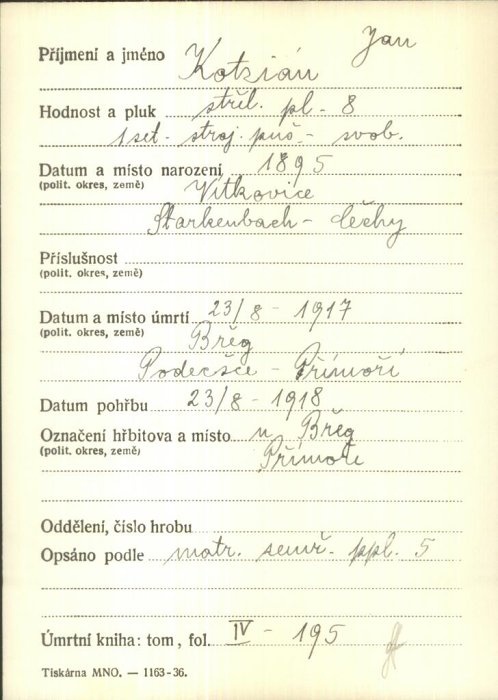 Jan
Příjmení a jméno Kotzián
Hodnost a pluk střel. pl. 8
1 set. stroj. puš. - svob.
Datum a místo narození 1895
(polit. okres, země) Vítkovice
Starkenbach - Čechy
Příslušnost
(polit. okres, země)
Datum a místo úmrtí 23/8 - 1917
(polit. okres, země) Břeg
Podecšce - Přímoří
Datum pohřbu 23/8 - 1918
Označení hřbitova a místo u Břeg
(polit. okres, země) Přímoře
Oddělení, číslo hrobu
Opsáno podle matr. ppl. 5
Úmrtní kniha: tom, fol. IV - 195
Tiskárna MNO. — 1163-36.